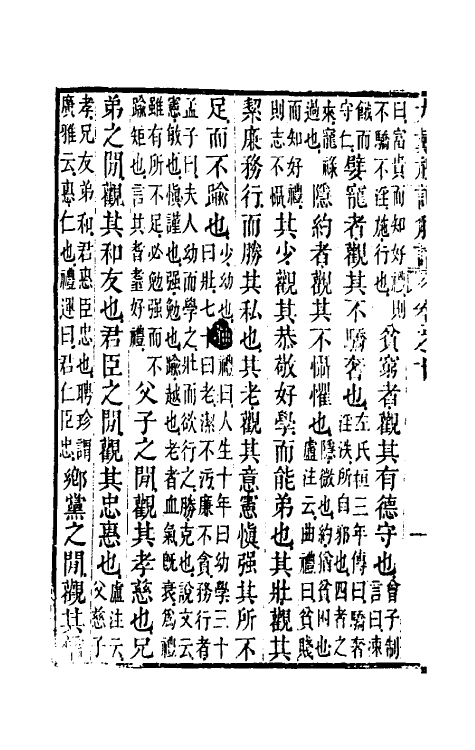 大戴禮記解詁 卷之十 一
曰富貴而知好禮則不驕不淫施行也貧窮者觀其有德守也曾子制言曰凍
餓而守仁嬖寵者觀其不驕奢也左氏桓三年傳曰驕奢淫泆所自邪也四者之
來寵祿過也隱約者觀其不懾懼也隱微也約猶困也盧注云曲禮曰貧賤
而知好禮則志不懾其少觀其恭敬好學而能弟也其壯觀其
絜廉務行而勝其私也其老觀其意憲慎强其所不
足而不踰也少幼也曲禮曰人生十年曰幼學三十曰壯七十曰老潔不汚廉不貪務行者
孟子曰夫人幼而學之壯而欲行之勝克也說文云憲敏也慎謹也强勉也踰越也老者血氣既衰爲禮
雖有所不足必勉强而不踰矩也言其耆耋好禮父子之閒觀其孝慈也兄
弟之閒觀其和友也君臣之閒觀其忠惠也盧注云父慈子
孝兄友弟和君惠臣忠也聘珍謂廣雅云惠仁也禮運曰君仁臣忠鄉黨之閒觀其